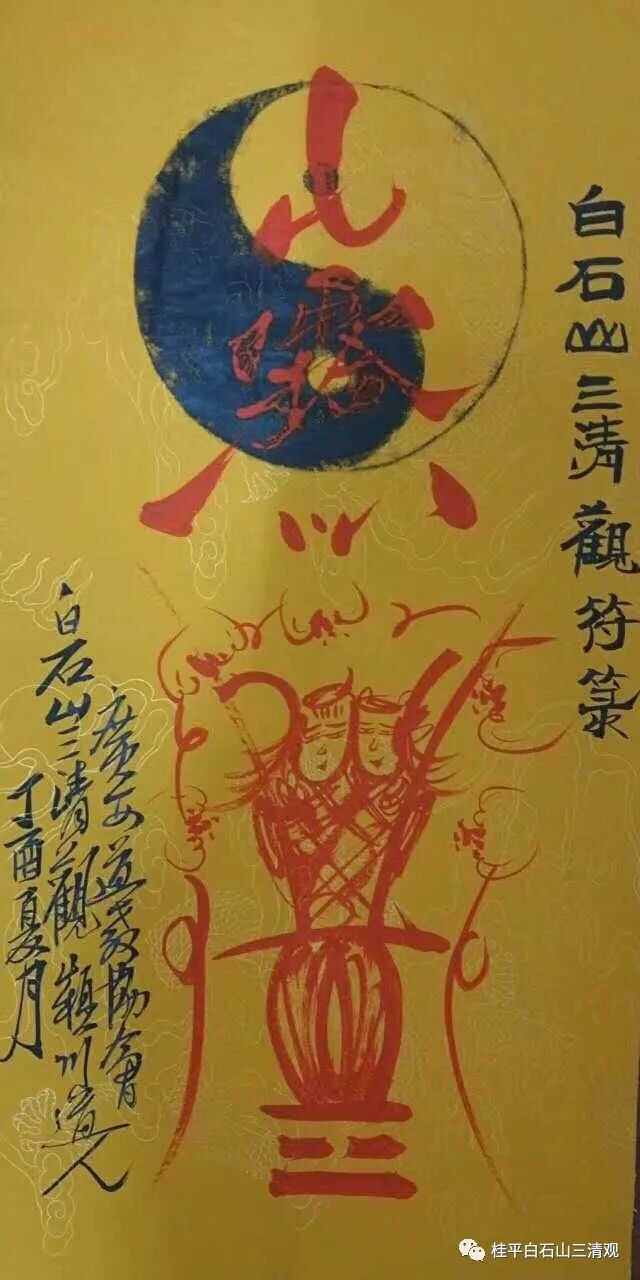 白石山三清觀符箓
山靈
廣西道教協會
白石山三清觀 穎川道人
丁酉夏月
桂平白石山三清观